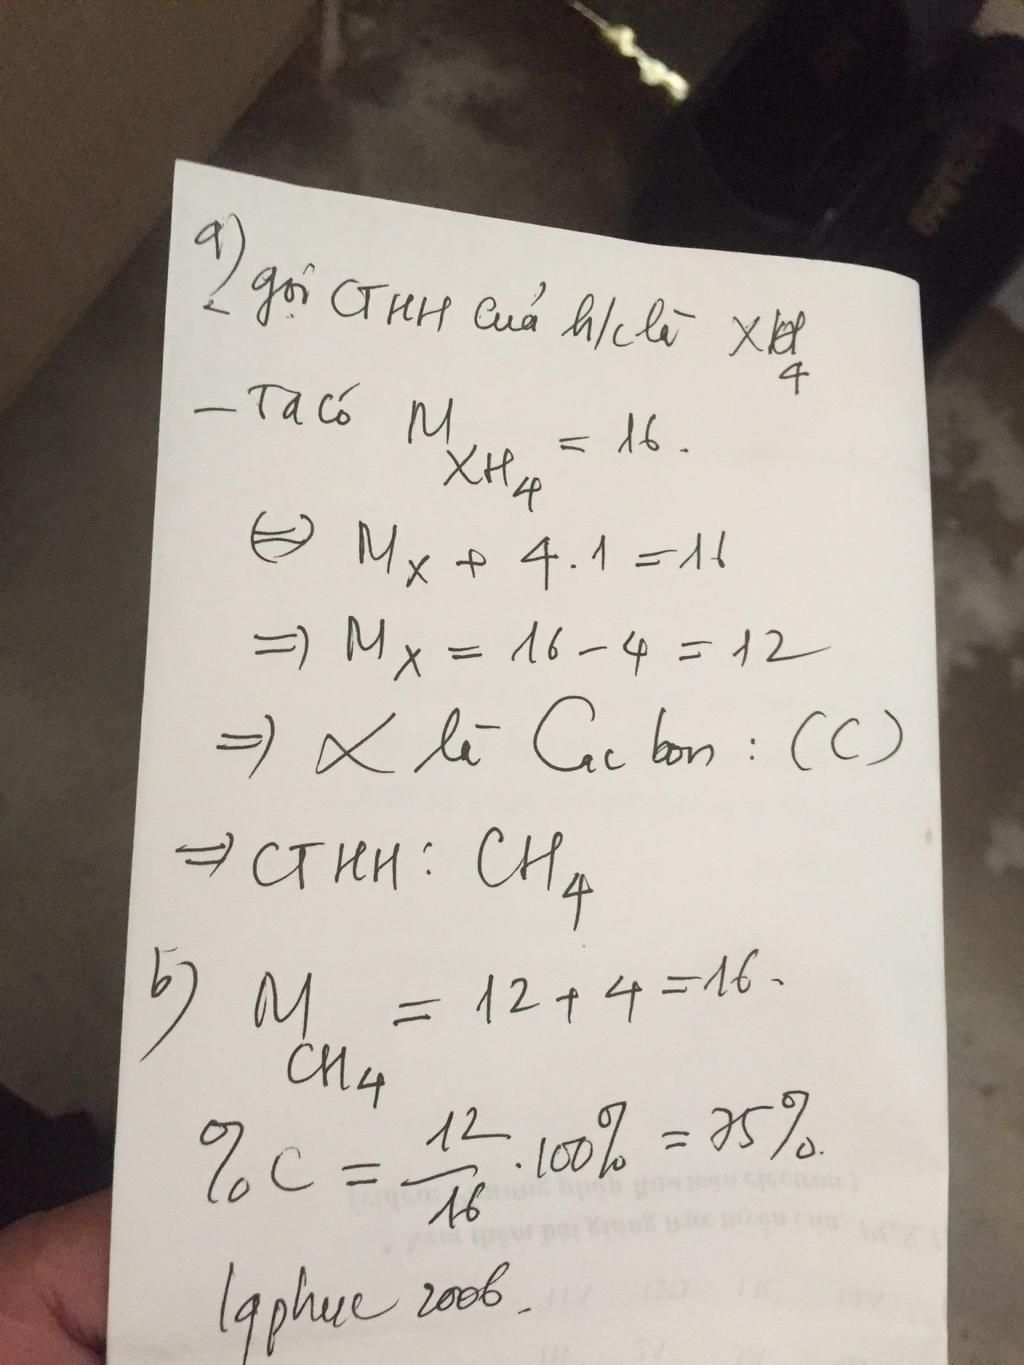 a)
gọi CTHH của h/c là XH4
- Ta có M XH4 = 16.
⇔ Mx + 4.1 = 16
=> Mx = 16 - 4 = 12
=> X là Cacbon : (C)
=> CTHH: CH4
b) M CH4 = 12 + 4 = 16.
%C = 12/16 . 100% = 75%.
lqphuc 2006.